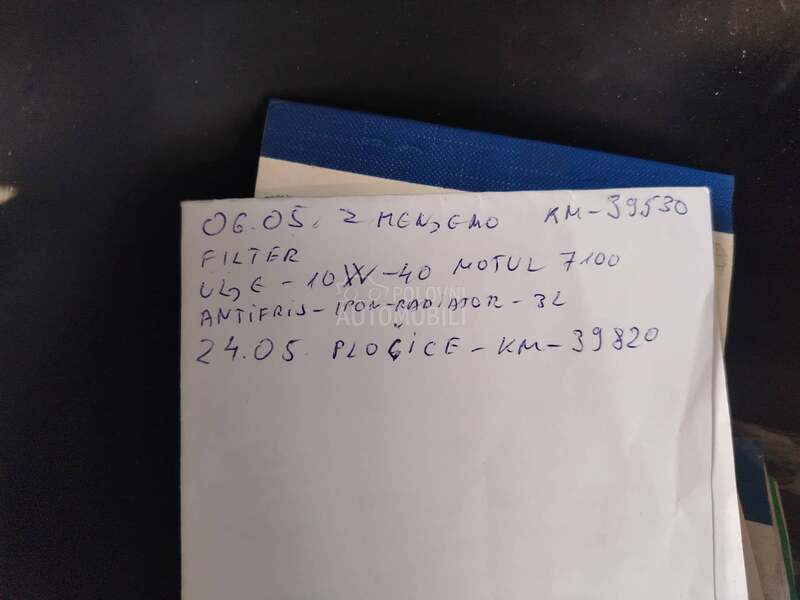 06.05. ZMENJENO KM-39530
FILTER
ULJE-10W-40 MOTUL 7100
ANTIFRIS-IPON-RADIATOR-3L
24.05. PLOČICE-KM-39820
POLOVNI
AUTOMOBILI